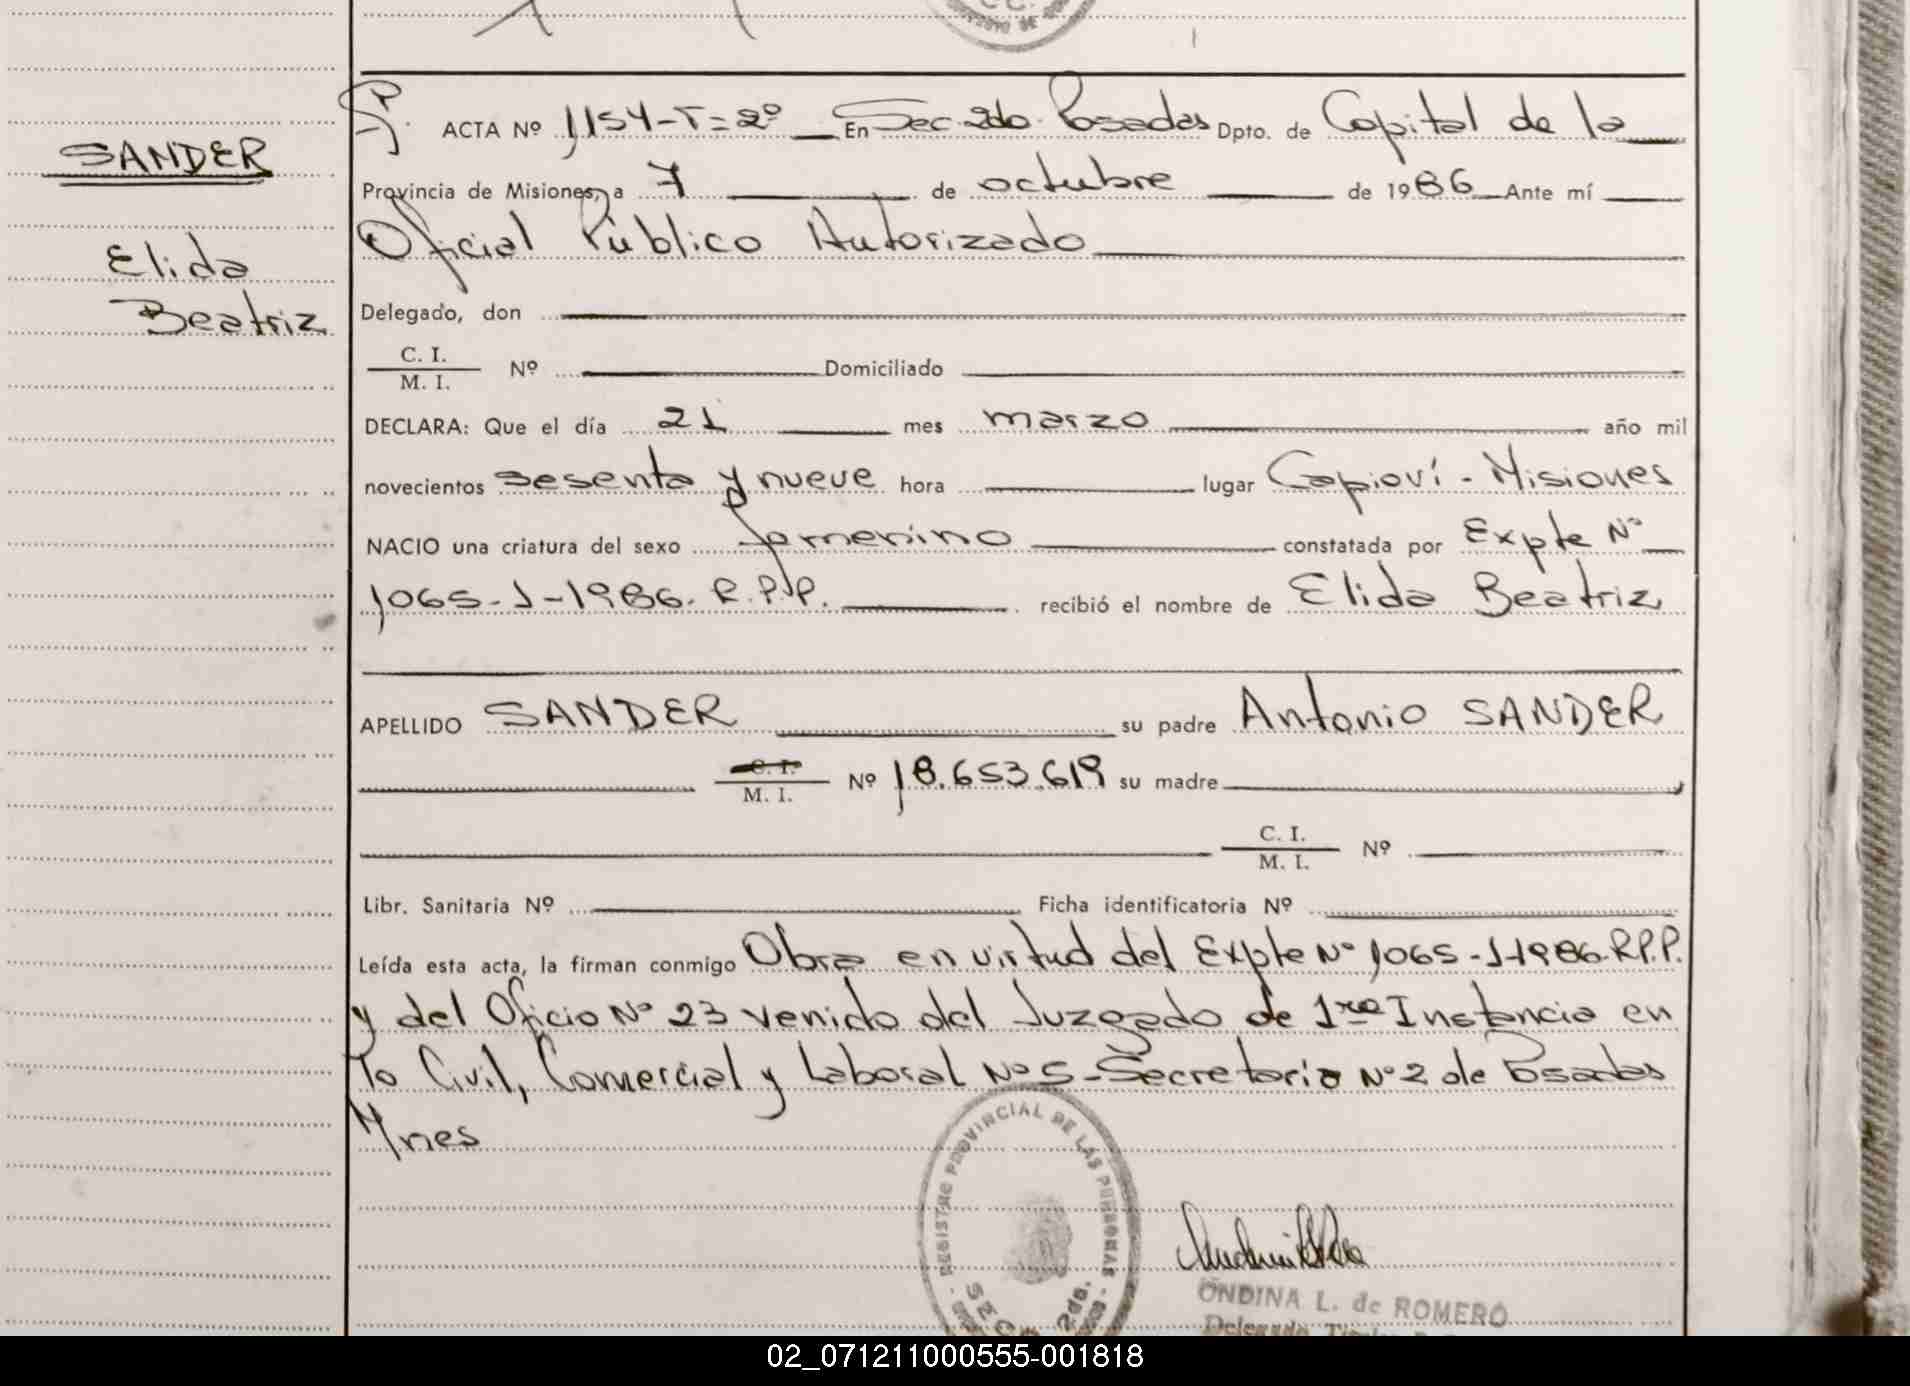 SANDER
Elida
Beatriz
ACTA Nº 1154-T=2º En Sec 2do. Posadas Dpto. de Capital de la
Provincia de Misiones, a 7 de octubre de 1986 Ante mí
Oficial Público Autorizado
Delegado, don
C. I.
M. I. Nº Domiciliado
DECLARA: Que el día 21 mes marzo año mil
novecientos sesenta y nueve hora lugar Capioví - Misiones
NACIO una criatura del sexo femenino constatada por Expte Nº
1065-J-1986. R.P.P. recibió el nombre de Elida Beatriz
APELLIDO SANDER su padre Antonio SANDER
C. I.
M. I. Nº 18.653.619 su madre
C. I.
M. I. Nº
Libr. Sanitaria Nº Ficha identificatoria Nº
Leída esta acta, la firman conmigo Obra en virtud del Expte Nº 1065-J-1986. R.P.P.
y del Oficio Nº 23 venido del Juzgado de 1ra Instancia en
lo Civil, Comercial y Laboral Nº 5 - Secretaria Nº 2 de Posadas
Mnes
REGISTRO PROVINCIAL DE LAS PERSONAS
SECC. 2da.
ONDINA L. de ROMERO
Delegado
02_071211000555-001818